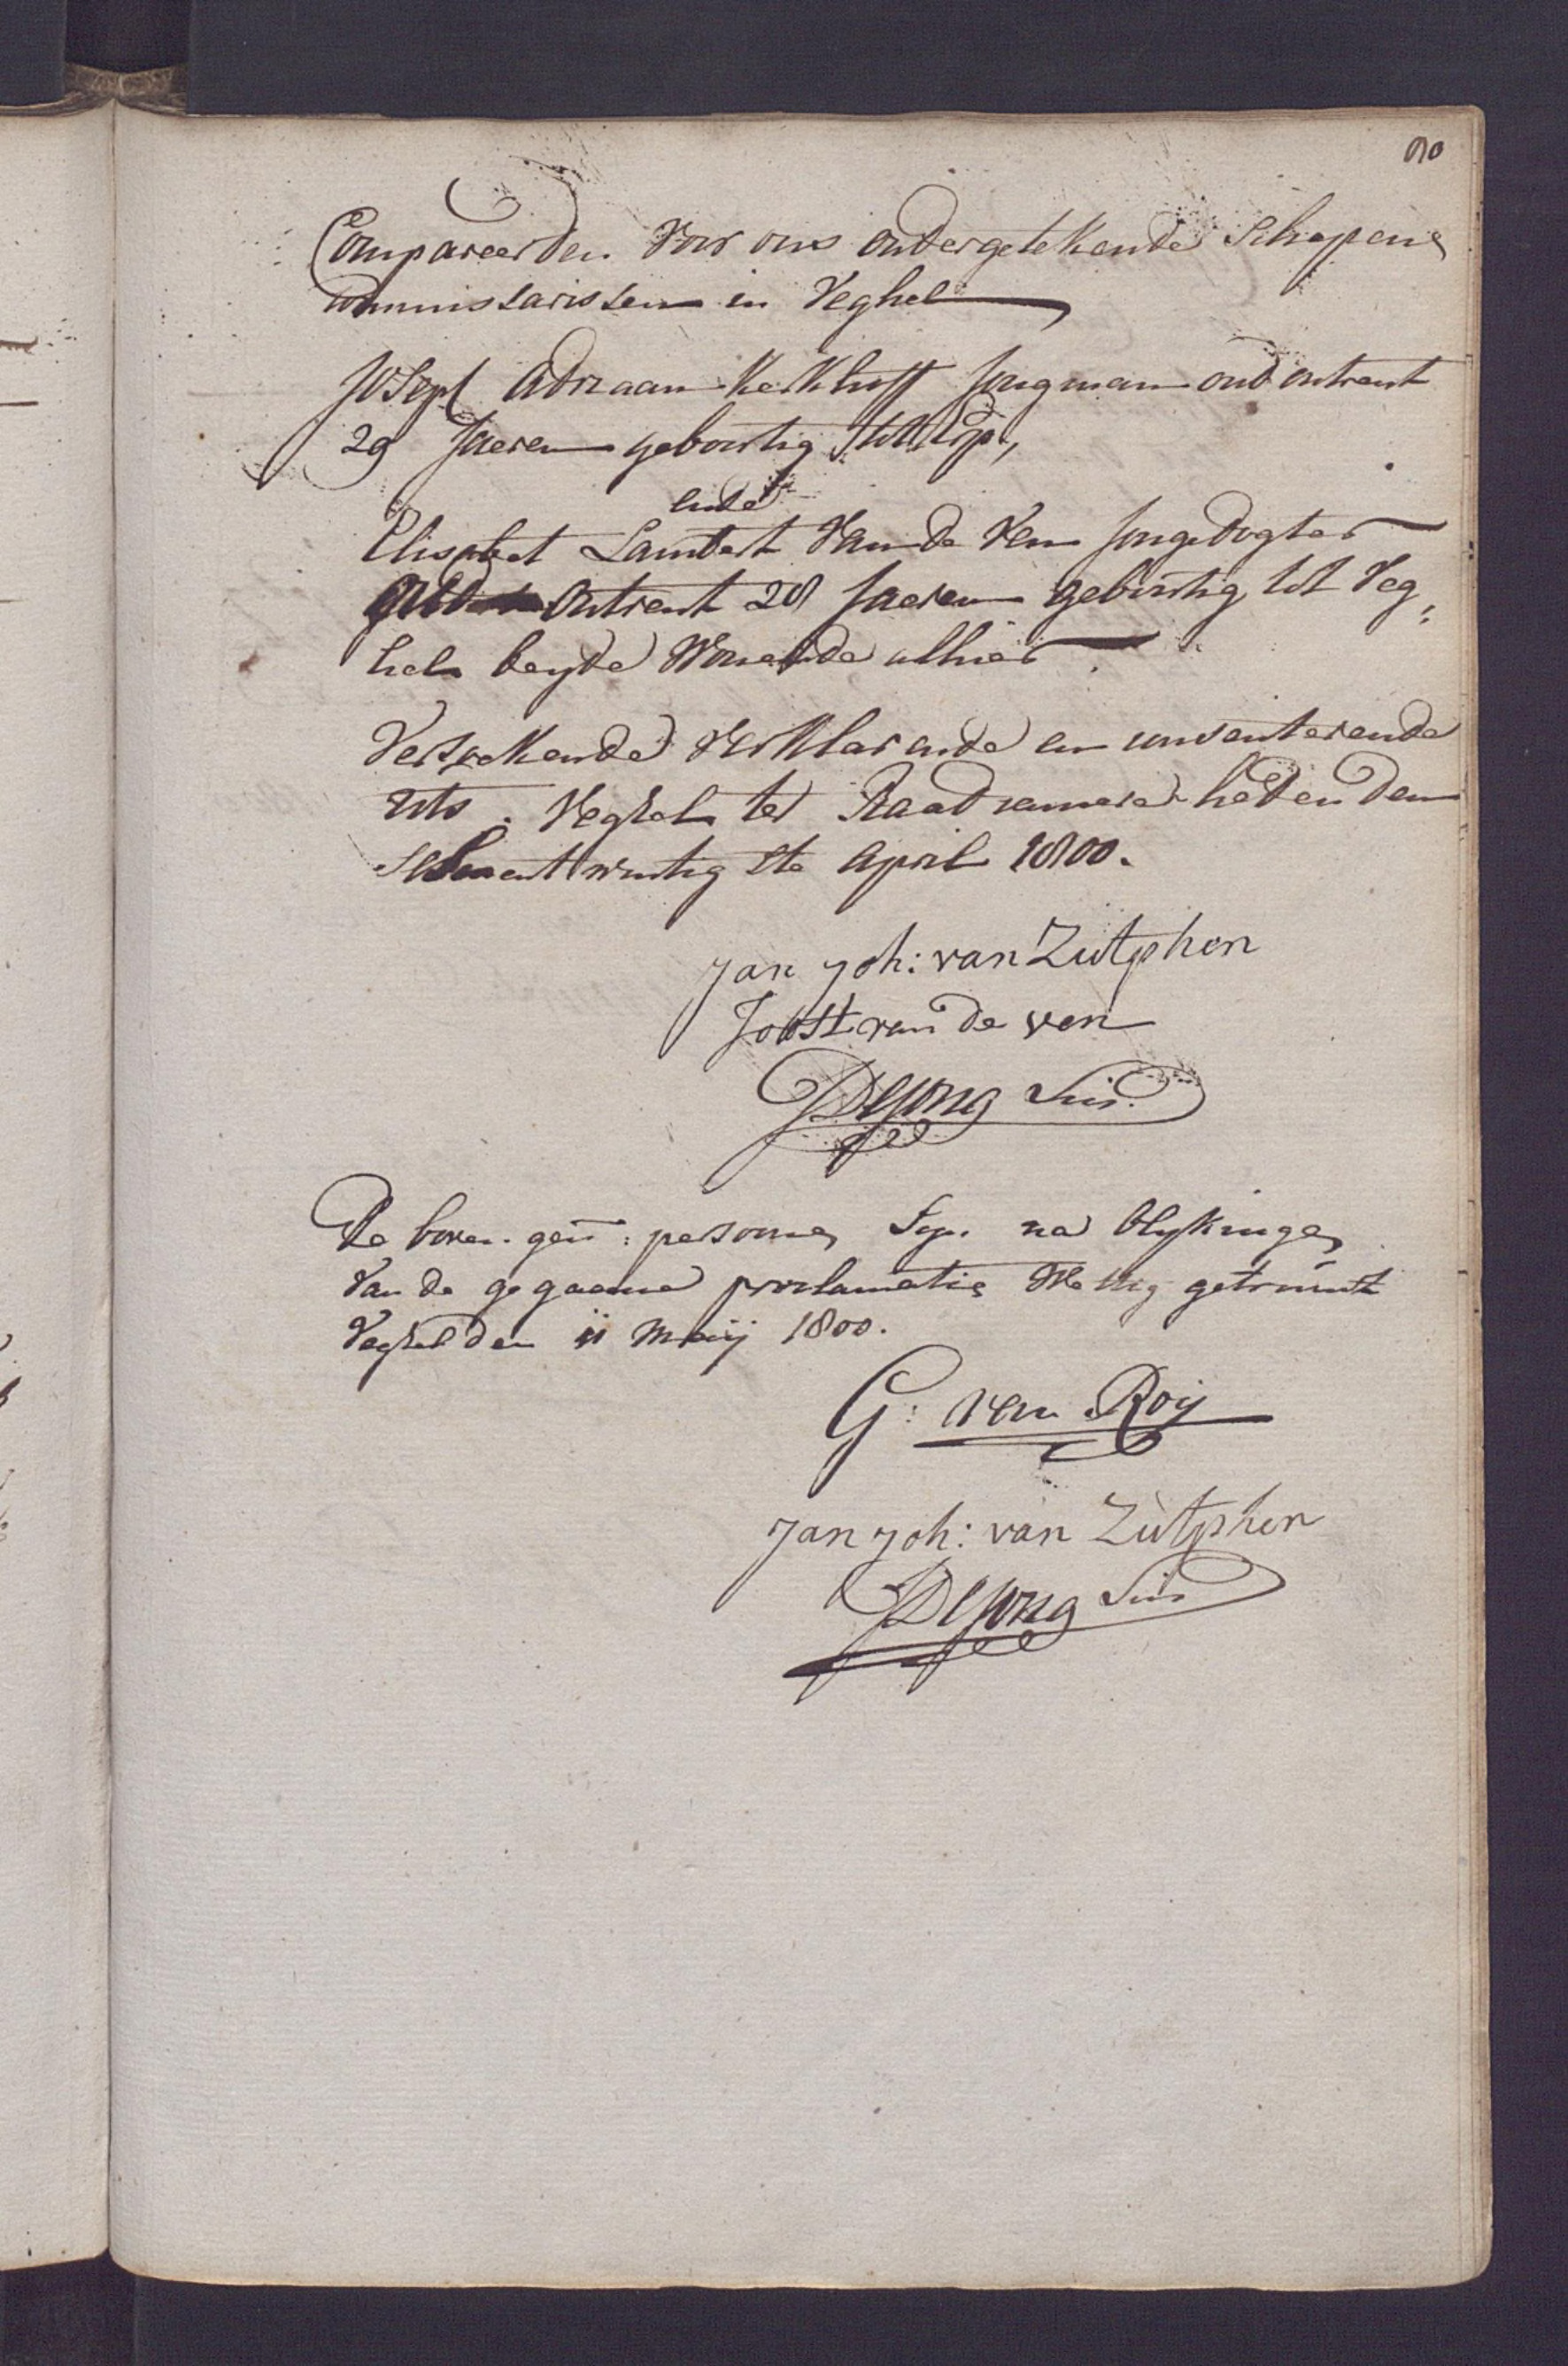 90
Compareerden voor ons ondergetekende Schepene
Commissarissen in Veghel
Joseph Adriaan Kerkhoff Jongman oud ontrent
29 Jaeren gebortig tot
ende
Elisabet Lambert van de Ven Jongedogter
ontrent 28 Jaeren gebortig tot Veg,
hel beyde Wonende alhier.
Versoekende Verklarende en consenterende
uts. Veghel ter Raadcamere heden den
sevenentwintigste April 1800.
Jan Joh: van Zutphen
Joost van de ven
DeJong Sus.
De boven gen: persoone sijn na blykinge
van de gegaane proclamatie Wettig getrouwt
Veghel den 11 Meij 1800.
G: van Roij
Jan Joh: van Zutphen
DeJong Sus